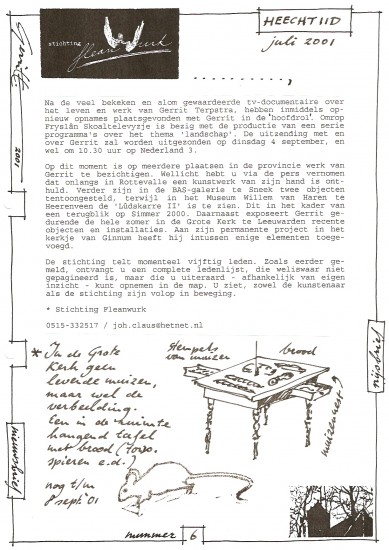 stichting
fleanwurk
HEECHTIID
juli 2001
..........,
Na de veel bekeken en alom gewaardeerde tv-documentaire over
het leven en werk van Gerrit Terpstra, hebben inmiddels op-
nieuw opnames plaatsgevonden met Gerrit in de hoofdrol. Omrop
Fryslân Skoaltelevyzje is bezig met de productie van een serie
programma's over het thema 'landschap'. De uitzending met en
over Gerrit zal worden uitgezonden op dinsdag 4 september, en
wel om 10.30 uur op Nederland 3.
Op dit moment is op meerdere plaatsen in de provincie werk van
Gerrit te bezichtigen. Wellicht hebt u via de pers vernomen
dat onlangs in Rottevalle een kunstwerk van zijn hand is ont-
huld. Verder zijn in de BAS-galerie te Sneek twee objecten
tentoongesteld, terwijl in het Museum Willem van Haren te
Heerenveen de 'Lûdskarre II' is te zien. Dit in het kader van
een terugblik op Simmer 2000. Daarnaast exposeert Gerrit ge-
durende de hele zomer in de Grote Kerk te Leeuwarden recente
objecten en installaties. Aan zijn permanente project in het
kerkje van Ginnum heeft hij intussen enige elementen toege-
voegd.
De stichting telt momenteel vijftig leden. Zoals eerder ge-
meld, ontvangt u een complete ledenlijst, die weliswaar niet
gepagineerd is, maar die u uiteraard - afhankelijk van eigen
inzicht - kunt opnemen in de map. U ziet, zowel de kunstenaar
als de stichting zijn volop in beweging.
* Stichting Fleanwurk
0515-332517 / joh.claus@hetnet.nl
* In de Grote
Kerk geen
levende muizen,
maar wel de
verbeelding.
Een in de ruimte
hangend tafel
met brood
spieren e.d.)
nog t/m
8 sept. '01
stempels
van muizen
brood
muizennest
2001
nijsbrief
nieuwsbrief
nummer 6